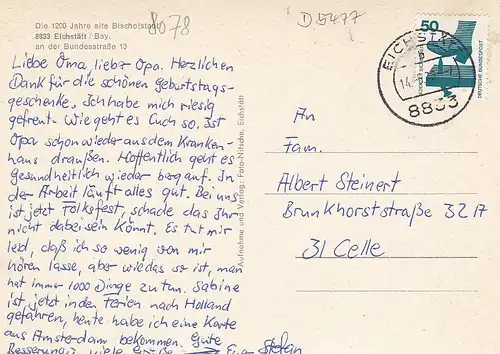 Die 1200 Jahre alte Bischofstadt
8833 Eichstätt / Bay.
an der Bundesstraße 13
8078
D5477
Liebe Oma, lieber Opa. Herzlichen
Dank für die schönen Geburtstags-
geschenke. Ich habe mich riesig
gefreut. Wie geht es Euch so. Ist
Opa schon wieder aus dem Kranken-
haus draußen. Hoffentlich geht es
Gesundheitlich wieder bergauf. In
der Arbeit läuft alles gut. Bei uns
ist jetzt Folksfest, schade das Ihr
nicht dabei sein könnt. Es tut mir
leid, daß ich so wenig von mir
hören lasse, aber wie das so ist, man
hat immer 1000 Dinge zu tun. Sabine
ist jetzt in den Ferien nach Holland
gefahren, heute habe ich eine Karte
aus Amsterdam bekommen. Gute
Besserung, viele Grüße Euer Stefan
Aufnahme und Verlag: Foto-Nitsche, Eichstätt
50
DEUTSCHE BUNDESPOST
EICHSTÄTT
8833
An
Fam.
Albert Steinert
Brunkhorststraße 32A
31 Celle